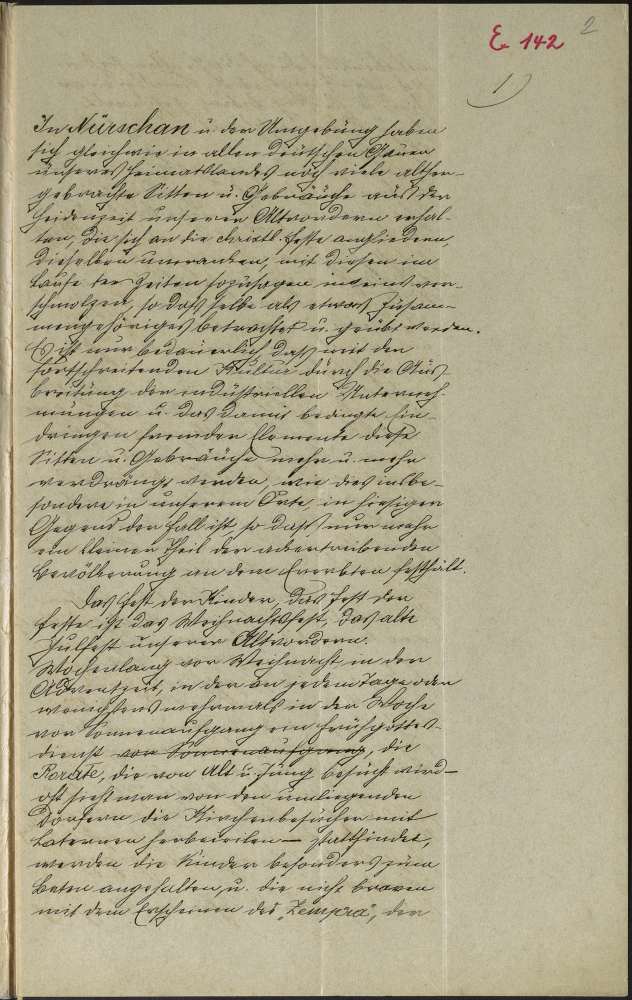 E. 142
2
1)
In Nürschan u. der Umgebung haben
sich gleichwie in allen deutschen Gauen
unseres Heimatslandes noch viele alther-
gebrachte Sitten u. Gebräuche aus der
Heidenzeit unserer Altvordern erhal-
ten, die sich an die christl. Feste angliedern,
dieselben umranken, mit diesen im
Laufe der Zeiten sozusagen in eins ver-
schmolzen, so daß selbe als etwas Zusam-
mengehöriges betrachtet u. geübt werden.
Es ist nur bedauerlich daß mit der
fortschreitenden Kultur durch die Aus-
breitung der industriellen Unterneh-
mungen u. das damit bedingte Ein-
dringen fremder Elemente diese
Sitten u. Gebräuche mehr u. mehr
verdrängt werden, wie dies insbe-
sondere in unserem Orte, in hiesiger
Gegend der Fall ist, so daß nur mehr
ein kleiner Theil der ackertreibenden
Bevölkerung an dem Ererbten festhält.
Das Fest der Kinder, das Fest der
Feste ist das Weihnachtsfest, das alte
Julfest unserer Altvordern.
Wochenlang vor Weihnacht, in der
Adventzeit, in der an jedem Tage oder
wenigstens mehrmals in der Woche
vor Sonnenaufgang ein Frühgottes-
dienst vor Sonnenaufgang, die
Rorate, die von Alt u. Jung besucht wird –
oft sieht man von den umliegenden
Dörfern die Kirchenbesucher mit
Laternen herbeieilen – stattfindet,
werden die Kinder besonders zum
Beten angehalten, u. die nicht braven
mit dem Erscheinen des „Zempra“, der